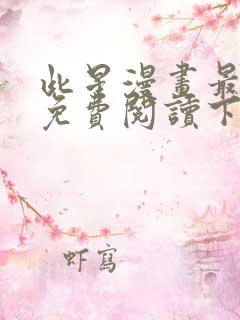 此星漫畫最
免費閱讀下
虾寫